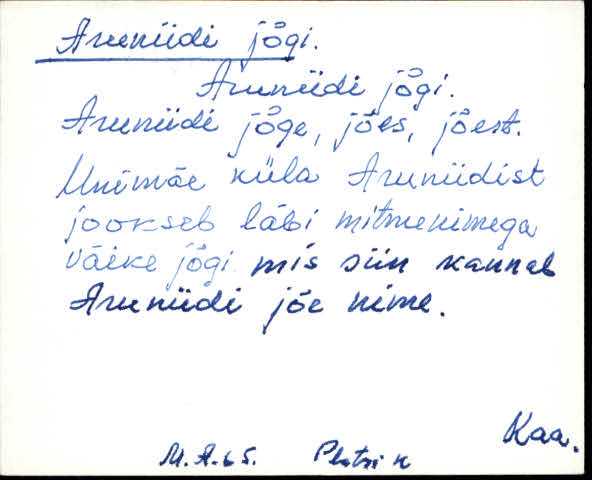 Aruniidi jõgi.
Aruniidi jõgi.
Aruniidi jõge, jões, jõest.
Unimäe küla Aruniidist
jookseb läbi mitmenimega
väike jõgi mis siin kannab
Aruniidi jõe nime.
Kaa.
M.A.65.